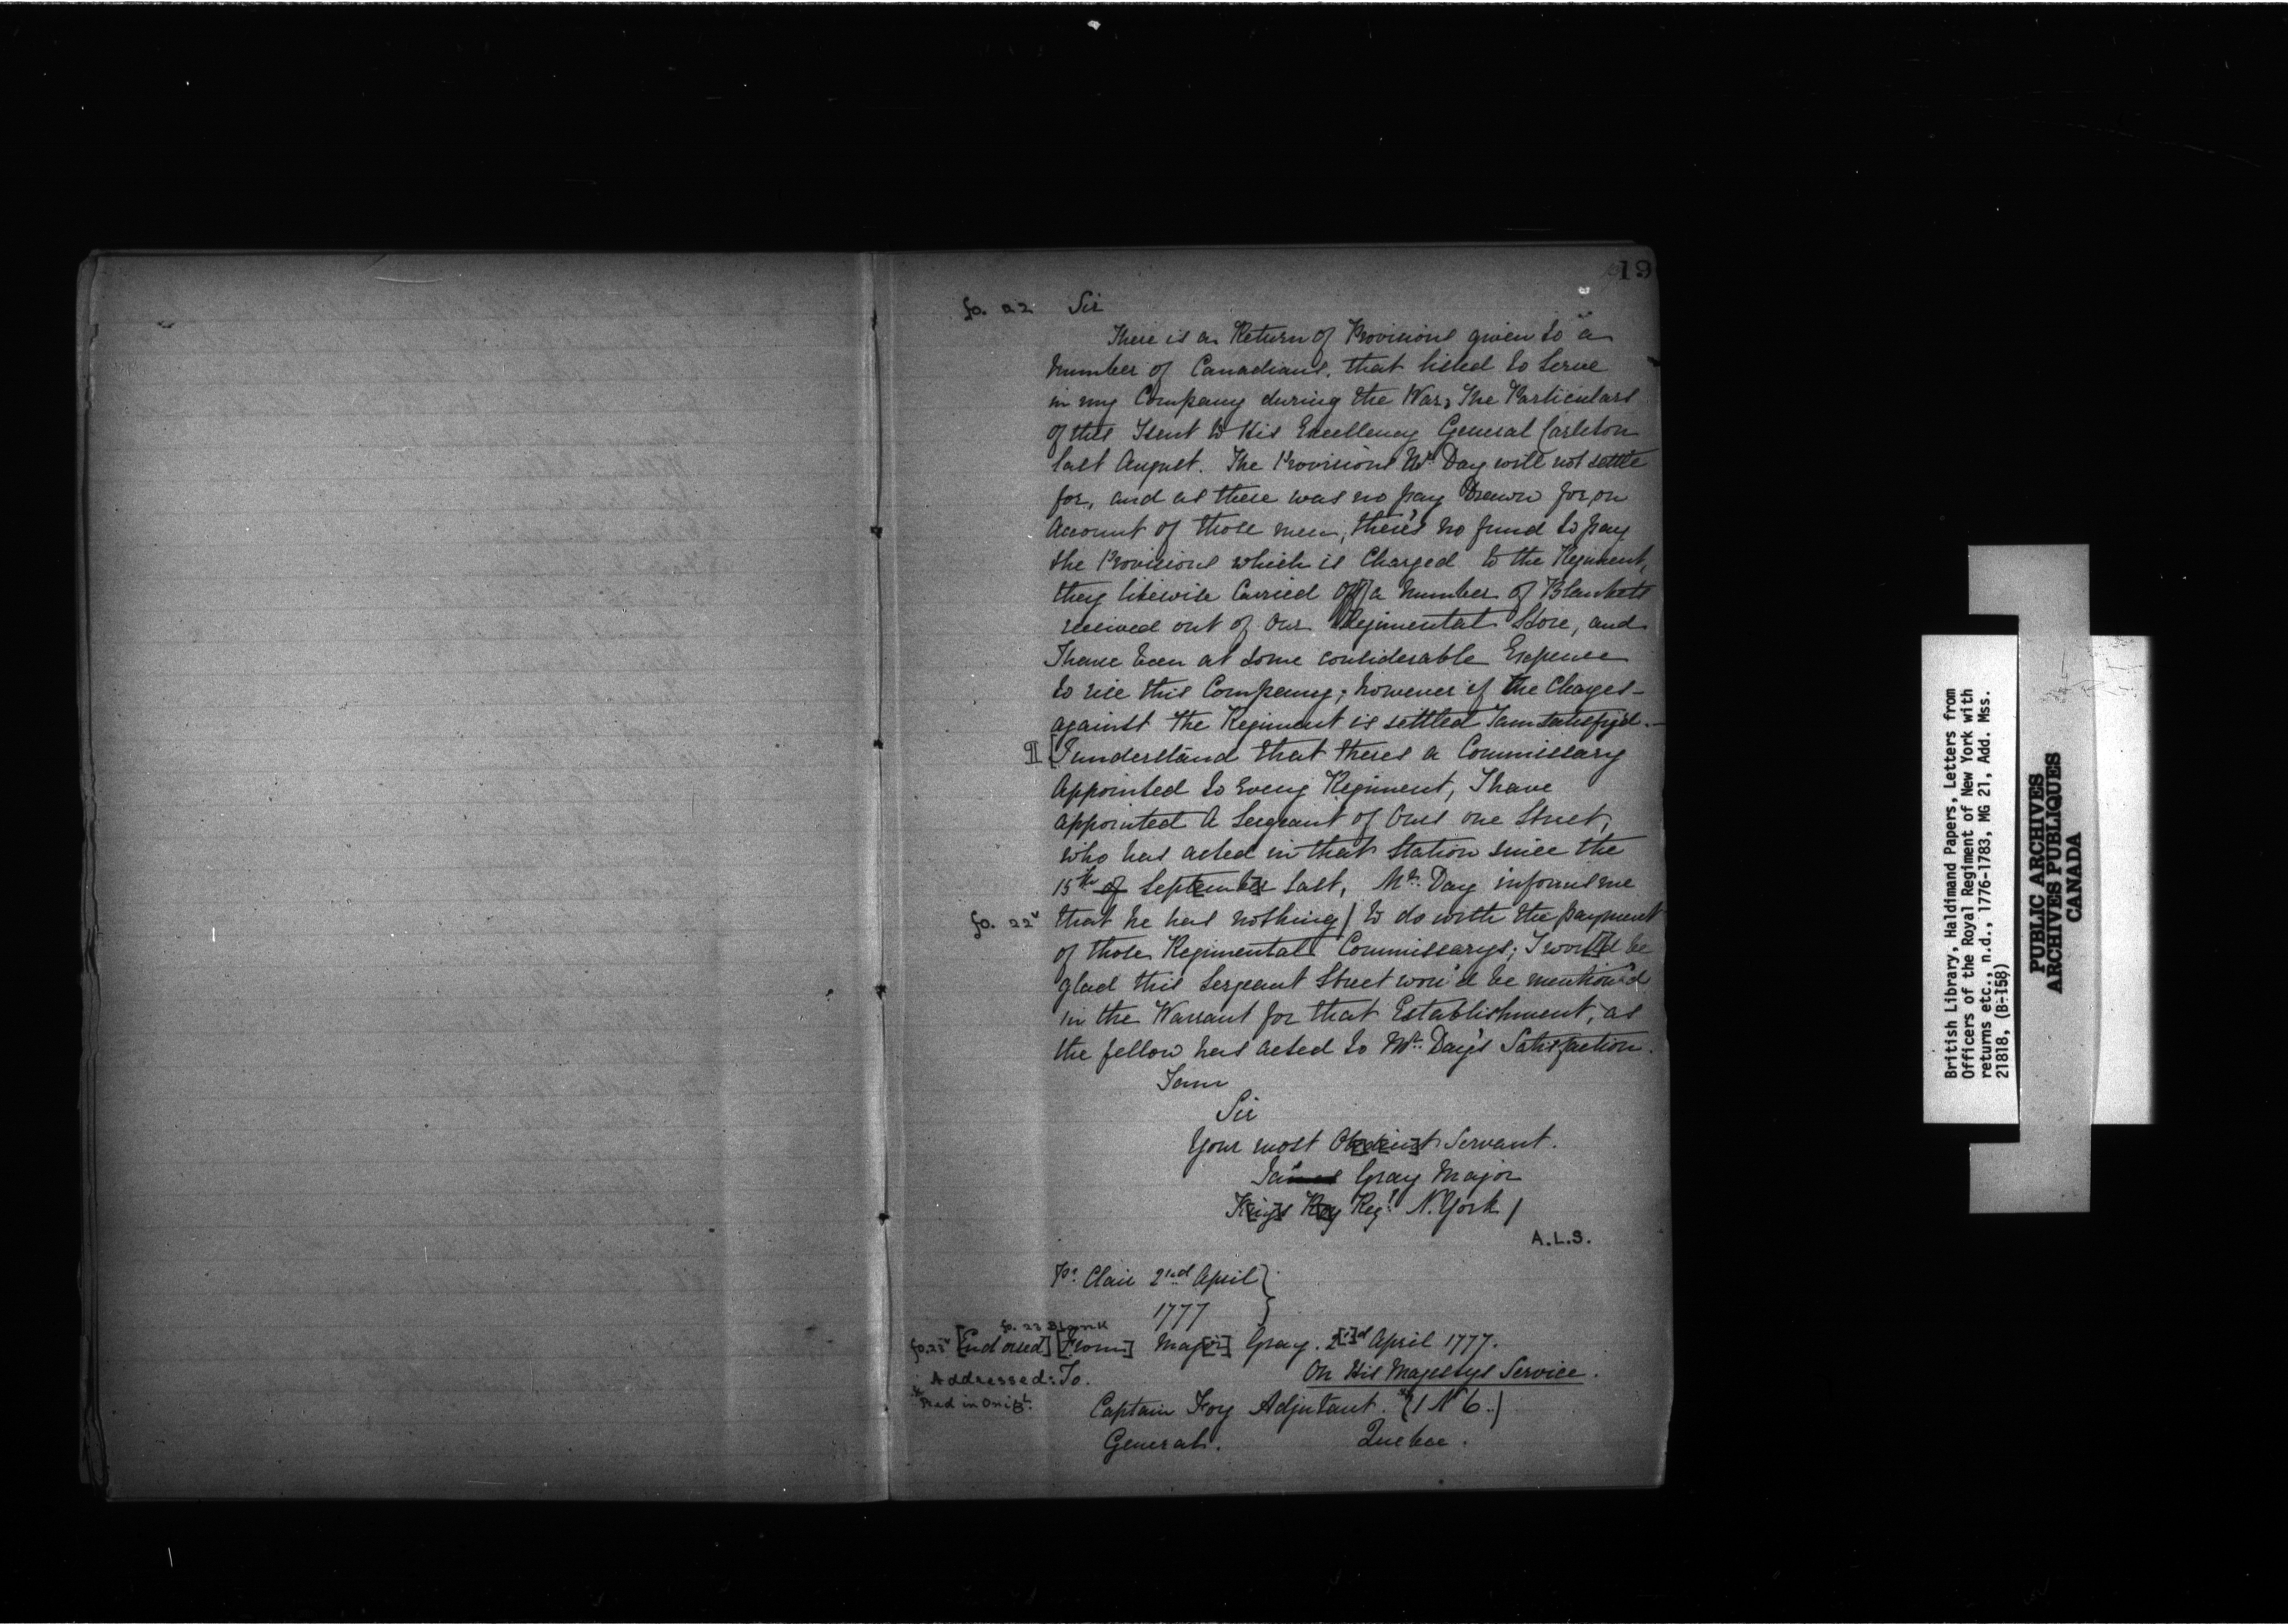 19
fo. 22 Sir
There is a Return of Provisions given to a
number of Canadians, that listed to Serve
in my Company during the War, The Particulars
of this I sent to His Excellency General Carleton
last August. The Provisions Mr. Day will not settle
for, and as there was no pay Drawn for, on
Account of those men, there's no fund to pay
the Provisions which is Charged to the Regiment,
they likewise Carried off a number of Blankets
received out of our Regimental Store, and
I have been at some considerable Expence
to rise this Company; however if the Charges
against the Regiment is settled I am satisfy'd.
[I understand that theres a Commissary
Appointed to Every Regiment, I have
appointed A Sergeant of Ours one Street,
who has acted in that Station since the
15th of September last, Mr. Day informs me
fo. 22v that he has nothing / to do with the payment
of those Regimental Commissarys; I would be
glad this Sergeant Street wou'd be mention'd
in the Warrant for that Establishment, as
the fellow has acted to Mr. Day's Satisfaction.
I am
Sir
Your most Obedient Servant.
James Gray Major
Kings Roy Regt. N. York /
A.L.S.
Pt. Clair 2nd April }
1777 }
fo. 23 Blank
fo. 23v [Endorsed] [From] Maj[or] Gray. 2[n]d April 1777.
Addressed: To. On His Majestys Service.
* Red in Origl. Captain Foy Adjutant. *(1 No 6.)
General. Quebec.
British Library, Haldimand Papers, Letters from
Officers of the Royal Regiment of New York with
returns etc., n.d., 1776-1783, MG 21, Add. Mss.
21818, (B-158)
PUBLIC ARCHIVES
ARCHIVES PUBLIQUES
CANADA